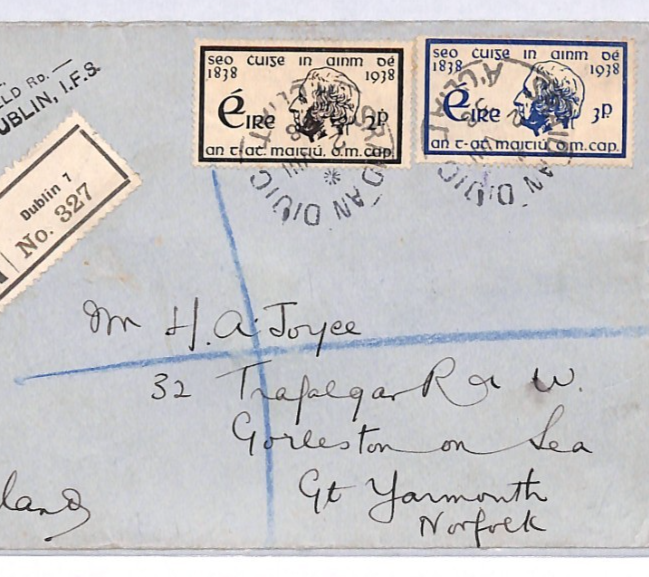 LD RD.
UBLIN, I.F.S.
seo cuize in ainm dé
1838 1938
Éire 2p
an t-at maitiú, o.m. cap.
seo cuize in ainm dé
1838 1938
Éire 3p
an t-at maitiú, o.m. cap.
Dublin 7
No. 327
Mr H. A. Joyce
32 Trafalgar Rd W.
Gorleston on Sea
Gt Yarmouth
Norfolk
land